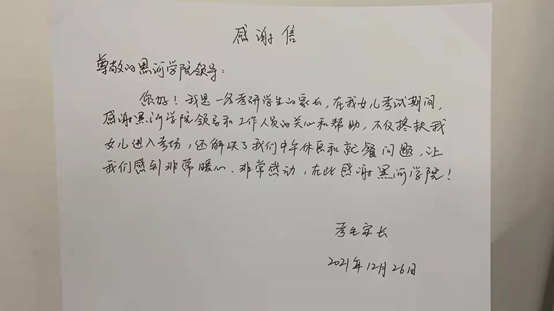 感谢信
尊敬的黑河学院领导:
您好!我是一名考研学生的家长,在我女儿考试期间,
感谢黑河学院领导和工作人员的关心和帮助,不仅搀扶我
女儿进入考场,还解决了我们中午休息和就餐问题,让
我们感到非常暖心、非常感动,在此感谢黑河学院!
考生家长
2021年12月26日